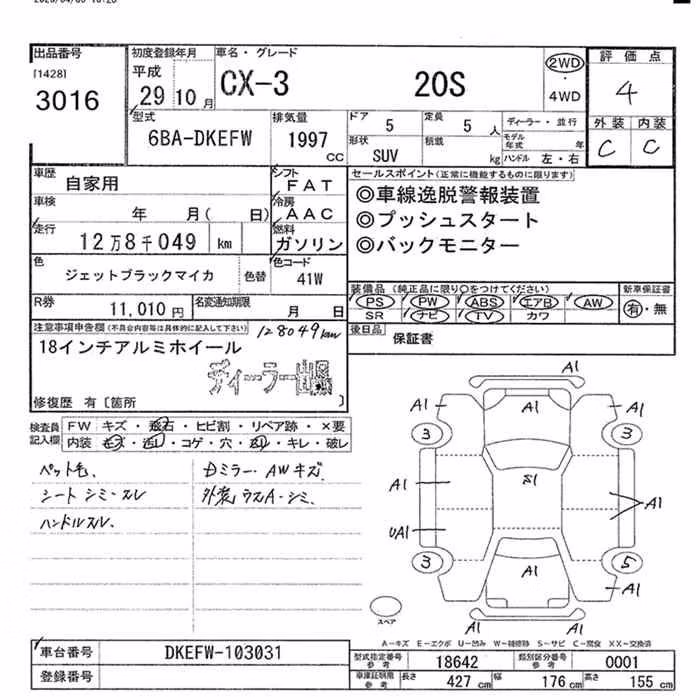 出品番号
[1428]
3016
初度登録年月
平成
29 10 月
車名・グレード
CX-3 20S
2WD
・
4WD
評価点
4
外装 内装
C C
型式
6BA-DKEFW
排気量
1997
CC
ドア
5
定員
5 人
形状
SUV
積載
kg
ディーラー・並行
モデル年式 年
ハンドル 左・右
車歴
自家用
シフト
FAT
車検
年 月( 日)
冷房
AAC
走行
12万8千049 km
燃料
ガソリン
色
ジェットブラックマイカ
色替
色コード
41W
R券
11,010円
名変通知期限
月 日
セールスポイント(正常に機能するものに限ります)
◎車線逸脱警報装置
◎プッシュスタート
◎バックモニター
装備品(純正品に限り○をつけてください)
PS PW ABS エアB AW
SR ナビ TV カワ
新車保証書
有・無
後日品
保証書
注意事項申告欄(不具合内容等は具体的に記入して下さい)
128049km
18インチアルミホイール
ディーラー出品
修復歴 有〔箇所 〕
検査員記入欄
FW キズ・飛石・ヒビ割・リペア跡・×要
内装 キズ・汚レ・コゲ・穴・スリ・キレ・破レ
ペット毛、
シート シミ・スレ
ハンドルスレ、
Dミラー・AWキズ
A1
A1 A1 A1
3 3
A1 S1 A1
UA1
3 5
A1 A1
A1 A1
スペア
A-キズ E-エクボ U-凹み W-補修跡 S-サビ C-腐食 XX-交換済
車台番号
DKEFW-103031
登録番号
型式指定番号
参考
18642
類別区分番号
参考
0001
車庫証明用
参考
長さ 427 cm 幅 176 cm 高さ 155 cm